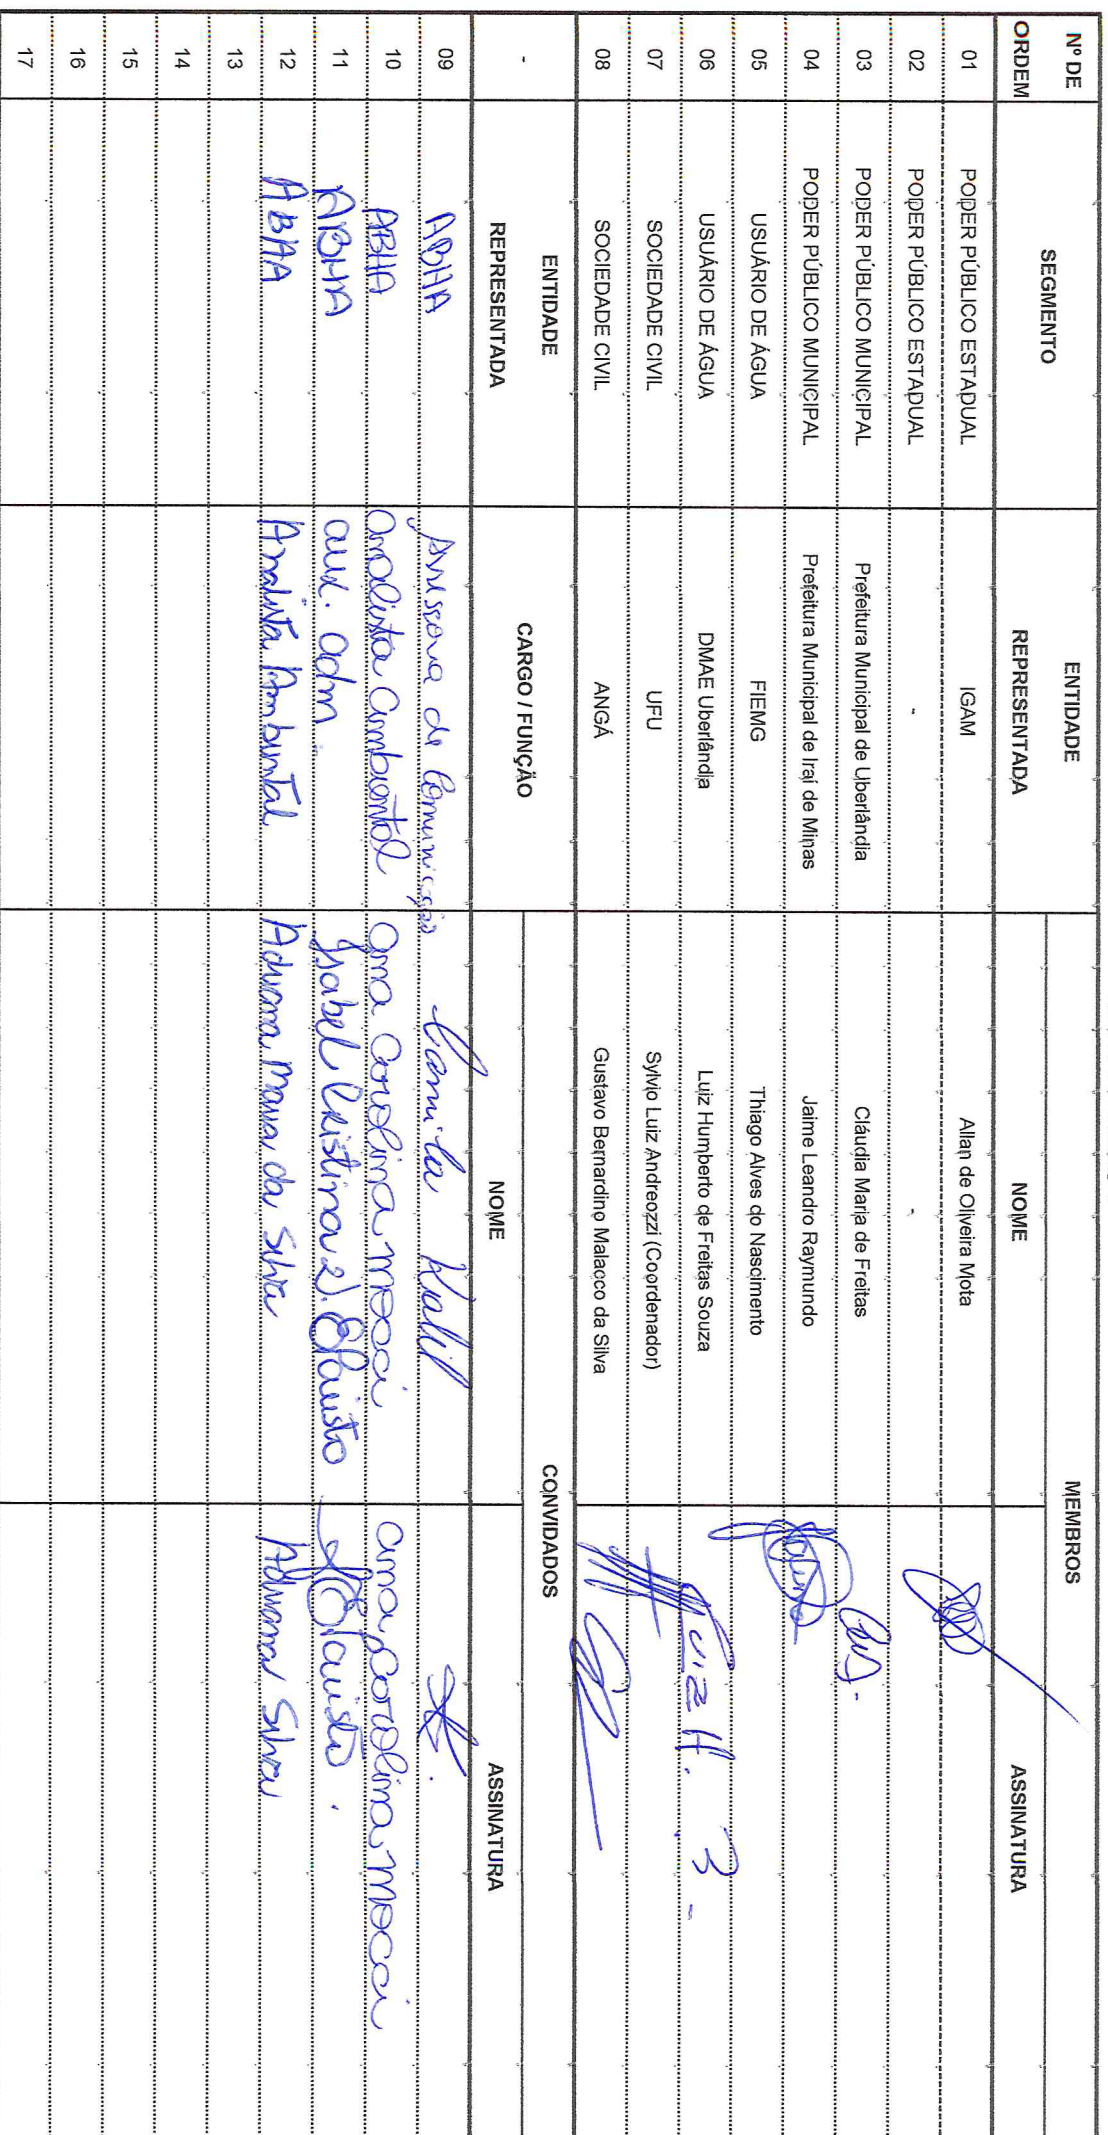 Nº DE ORDEM SEGMENTO ENTIDADE REPRESENTADA MEMBROS
NOME ASSINATURA
01 PODER PÚBLICO ESTADUAL IGAM Allan de Oliveira Mota
02 PODER PÚBLICO ESTADUAL - -
03 PODER PÚBLICO MUNICIPAL Prefeitura Municipal de Uberlândia Cláudia Maria de Freitas
04 PODER PÚBLICO MUNICIPAL Prefeitura Municipal de Iraí de Minas Jaime Leandro Raymundo
05 USUÁRIO DE ÁGUA FIEMG Thiago Alves do Nascimento
06 USUÁRIO DE ÁGUA DMAE Uberlândia Luiz Humberto de Freitas Souza Luiz H.
07 SOCIEDADE CIVIL UFU Sylvio Luiz Andreozzi (Coordenador)
08 SOCIEDADE CIVIL ANGÁ Gustavo Bernardino Malacco da Silva
- ENTIDADE REPRESENTADA CARGO / FUNÇÃO CONVIDADOS
NOME ASSINATURA
09 ABHA Assessora de Comunicação Camila Kalil
10 ABHA Analista Ambiental Ana Carolina Mocci Ana Carolina Mocci
11 ABHA aux. adm. Isabel Cristina
12 ABHA Analista Ambiental Adriana Maria da Silva Adriana Silva
13
14
15
16
17